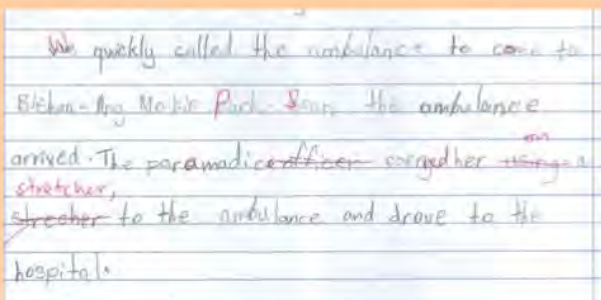 We quickly called the ambulance to come to
Bishan-Ang Mo Kio Park. Soon, the ambulance
arrived. The paramadic officer carged her on a
stretcher,
strecher to the ambulance and drove to the
hospital.